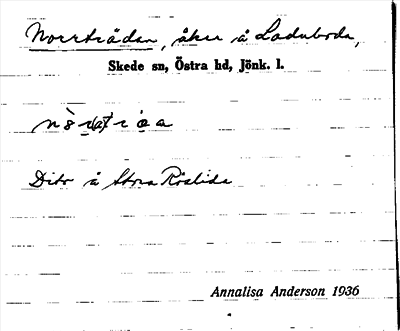 Norrträdan, åker å Laduboda,
Skede sn, Östra hd, Jönk. l.
Dito å Stora Röslida
Annalisa Anderson 1936